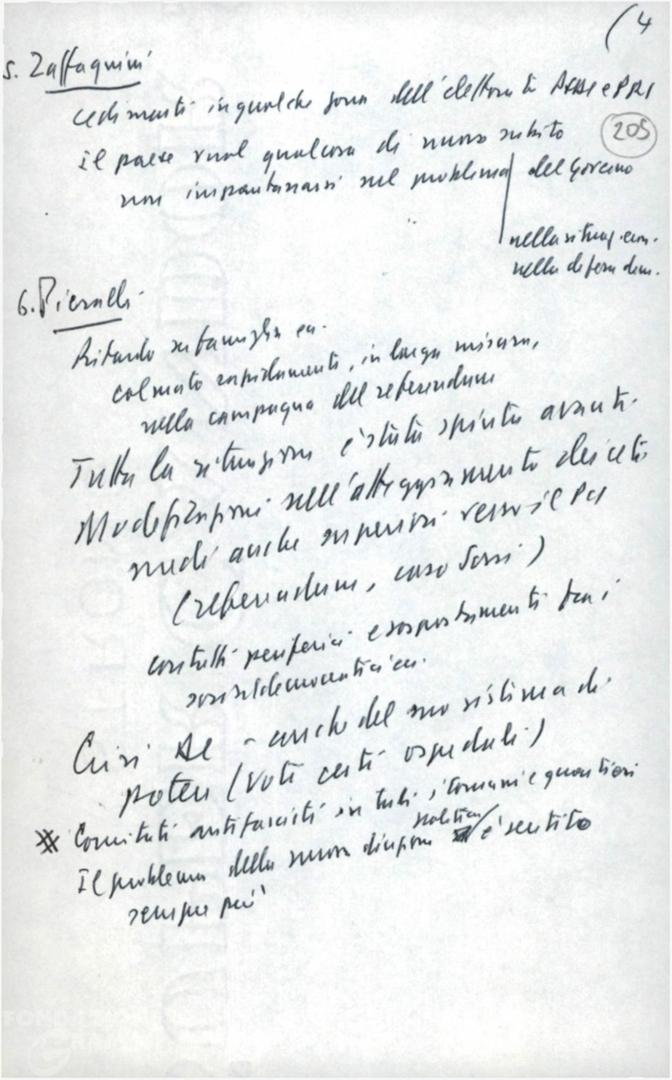 (4
5. Zaffagnini
cedimenti in qualche zona dell'elettorato e PRI
205
il paese vuol qualcosa di nuovo subito
non impantanarsi sul problema del governo
nella situaz. econ.
nella difesa dem.
6. Pieralli
Ritardo su famiglia ecc.
colmato rapidamente, in larga misura,
nella campagna del referendum
Tutta la situazione è stata spinta avanti.
Modificazioni nell'atteggiamento dei ceti
medi anche superiori verso il PCI
(referendum, caso Sossi)
contatti periferici e sospostamenti tra i
socialdemocratici ecc.
Crisi DC - anche del suo sistema di
potere (voti certi ospedali)
* Comitati antifascisti in tutti i comuni e quartieri
Il problema della nuova direzione politica è sentito
sempre più